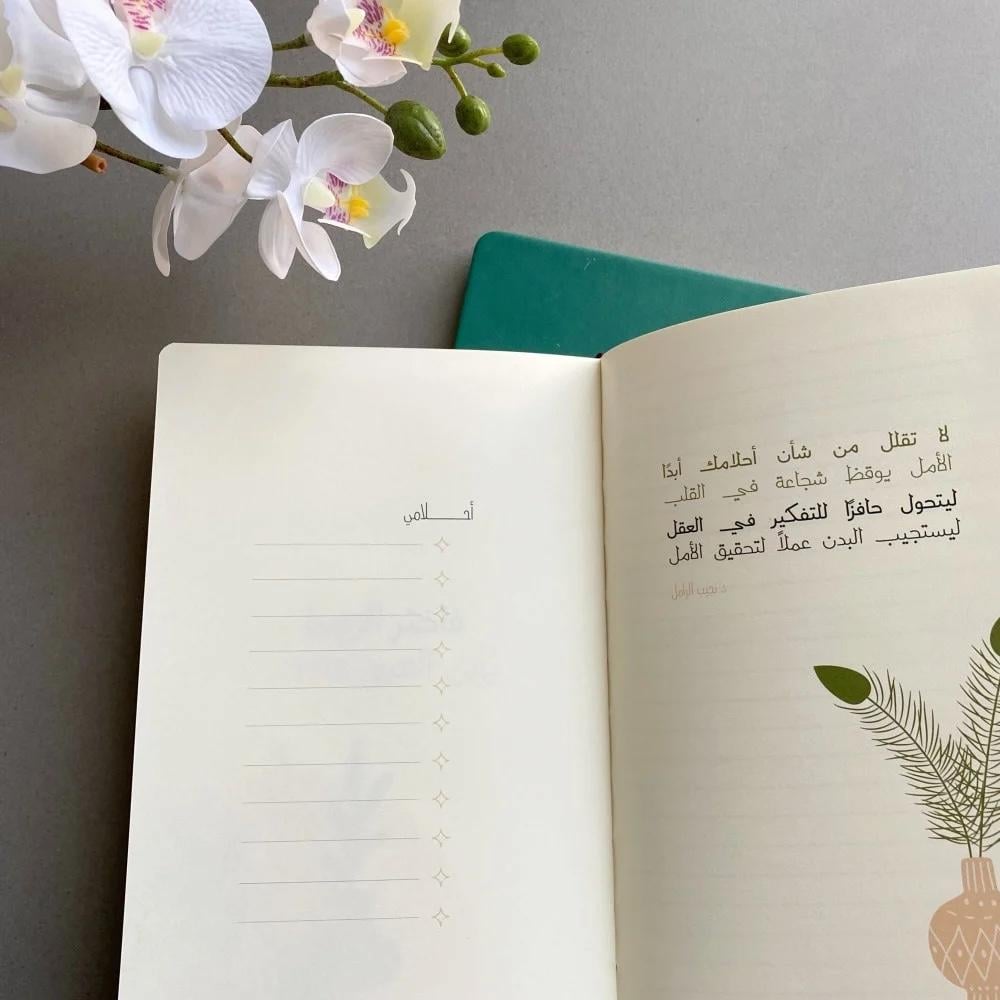 لا تقلل من شأن أحلامك أبدًا
الأمل يوقظ شجاعة في القلب
ليتحول حافزًا للتفكير في العقل
ليستجيب البدن عملاً لتحقيق الأمل
د.نجيب الزامل
أحـــــلامي